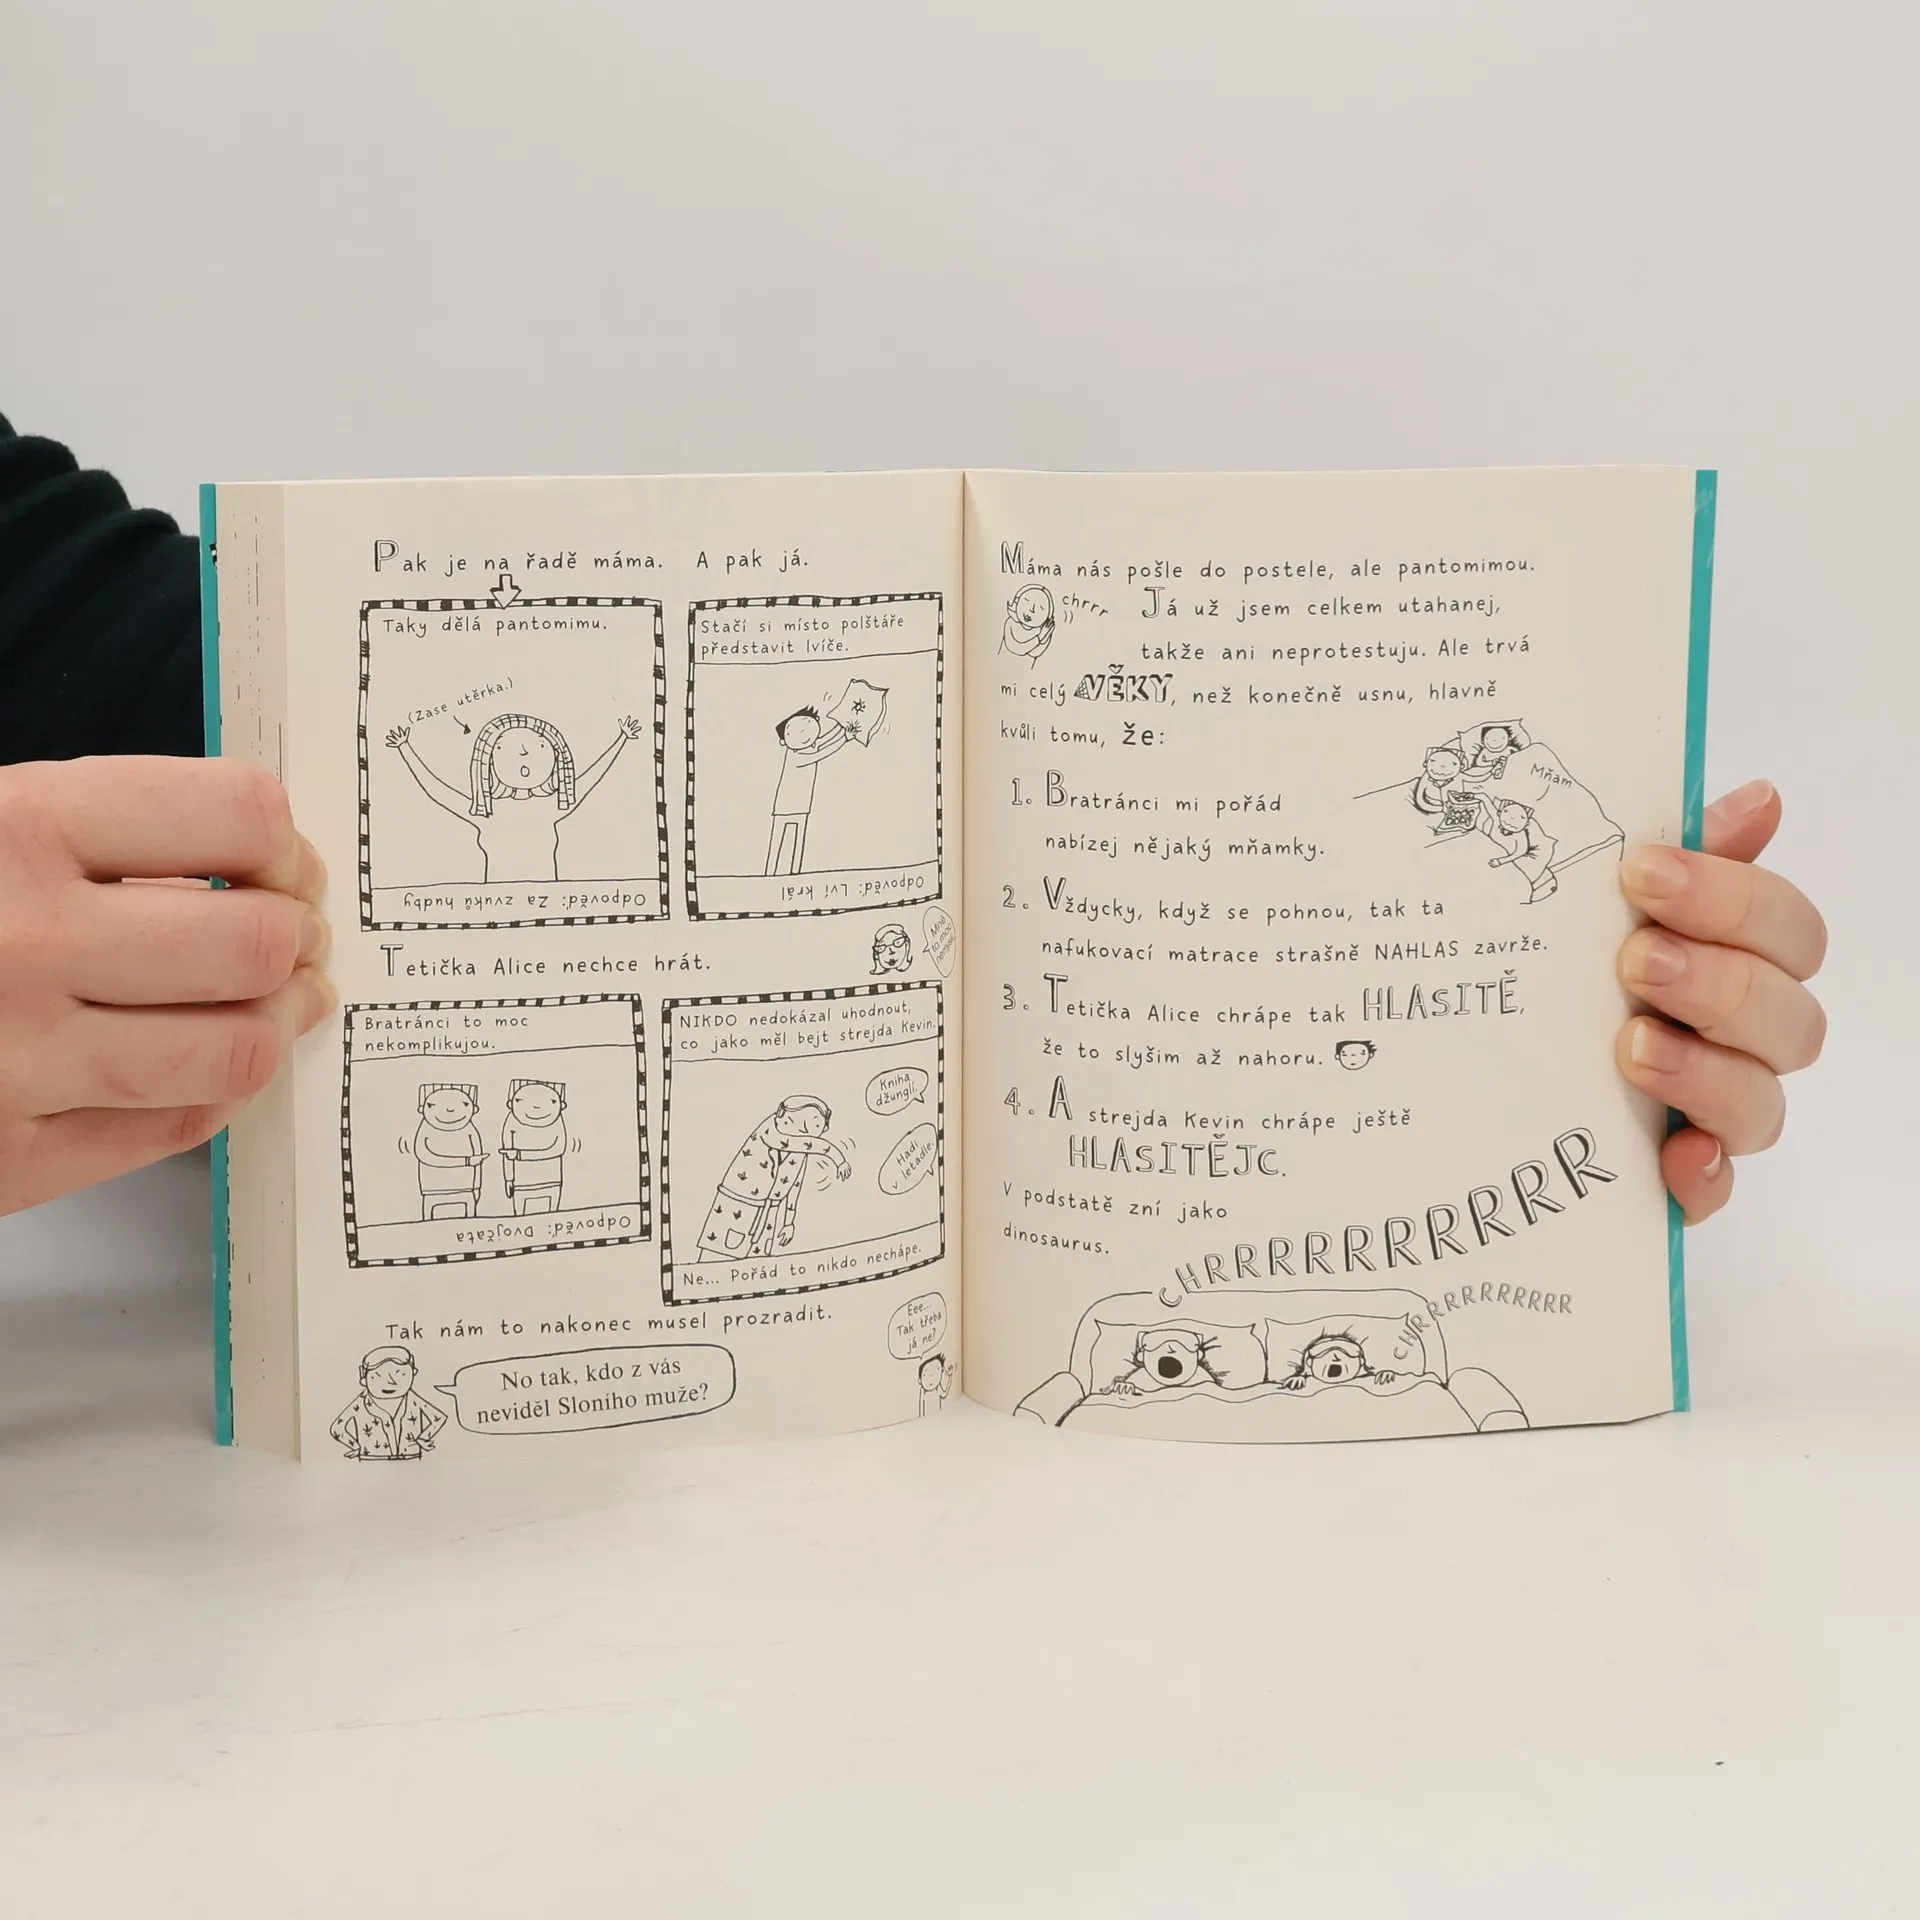 Pak je na řadě máma.
A pak já.
Taky dělá pantomimu.
(Zase utěrka.)
Odpověď: Za zvuků hudby
Stačí si místo polštáře
představit lvíče.
Odpověď: Lví král
Tetička Alice nechce hrát.
Mně
to moc
nemyslí.
Bratránci to moc
nekomplikujou.
Odpověď: Dvojčata
NIKDO nedokázal uhodnout,
co jako měl bejt strejda Kevin.
Kniha
džunglí.
Hadi
v letadle.
Ne... Pořád to nikdo nechápe.
Tak nám to nakonec musel prozradit.
No tak, kdo z vás
neviděl Sloního muže?
Eee...
Tak třeba
já ne?
Máma nás pošle do postele, ale pantomimou.
chrrr
Já už jsem celkem utahanej,
takže ani neprotestuju. Ale trvá
mi celý VĚKY, než konečně usnu, hlavně
kvůli tomu, že:
1. Bratránci mi pořád
nabízej nějaký mňamky.
Mňam
2. Vždycky, když se pohnou, tak ta
nafukovací matrace strašně NAHLAS zavrže.
3. Tetička Alice chrápe tak HLASITĚ,
že to slyšim až nahoru.
4. A strejda Kevin chrápe ještě
HLASITĚJC.
V podstatě zní jako
dinosaurus.
CHRRRRRRRRRRR
CHRRRRRRRRRRR